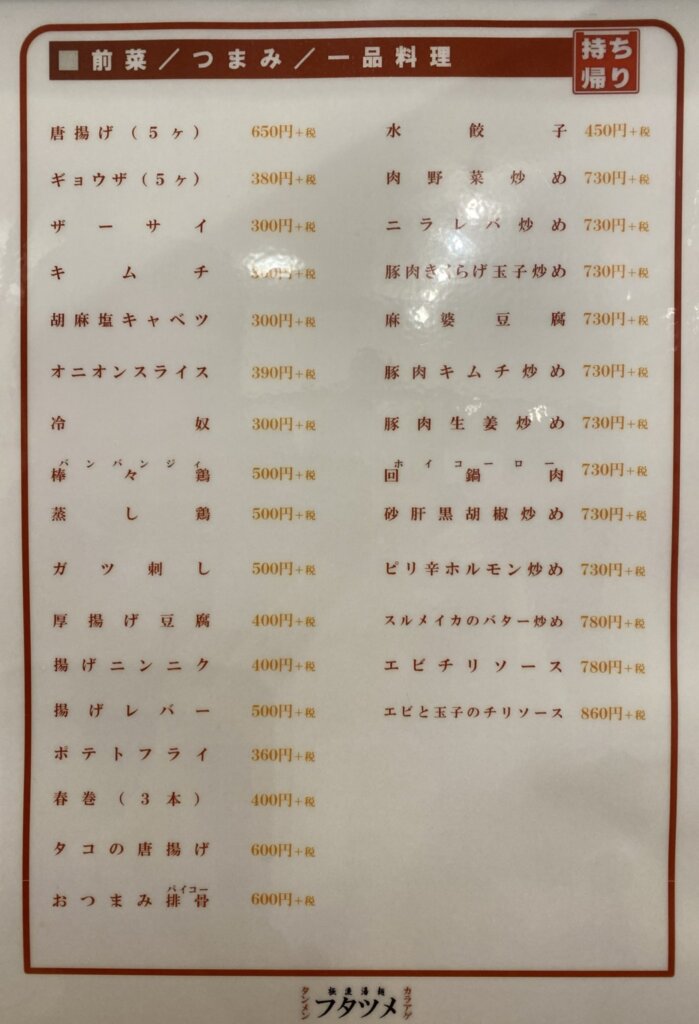 ■ 前菜／つまみ／一品料理
持ち
帰り
唐揚げ（５ヶ） 650円+税
ギョウザ（５ヶ） 380円+税
ザーサイ 300円+税
キムチ 円+税
胡麻塩キャベツ 300円+税
オニオンスライス 390円+税
冷奴 300円+税
バンバンジィ
棒々鶏 500円+税
蒸し鶏 500円+税
ガツ刺し 500円+税
厚揚げ豆腐 400円+税
揚げニンニク 400円+税
揚げレバー 500円+税
ポテトフライ 360円+税
春巻（３本） 400円+税
タコの唐揚げ 600円+税
パイコー
おつまみ排骨 600円+税
水餃子 450円+税
肉野菜炒め 730円+税
ニラレバ炒め 730円+税
豚肉きくらげ玉子炒め 730円+税
麻婆豆腐 730円+税
豚肉キムチ炒め 730円+税
豚肉生姜炒め 730円+税
ホイコーロー
回鍋肉 730円+税
砂肝黒胡椒炒め 730円+税
ピリ辛ホルモン炒め 730円+税
スルメイカのバター炒め 780円+税
エビチリソース 780円+税
エビと玉子のチリソース 860円+税
タンメン
極濃湯麺
フタツメ
カラアゲ